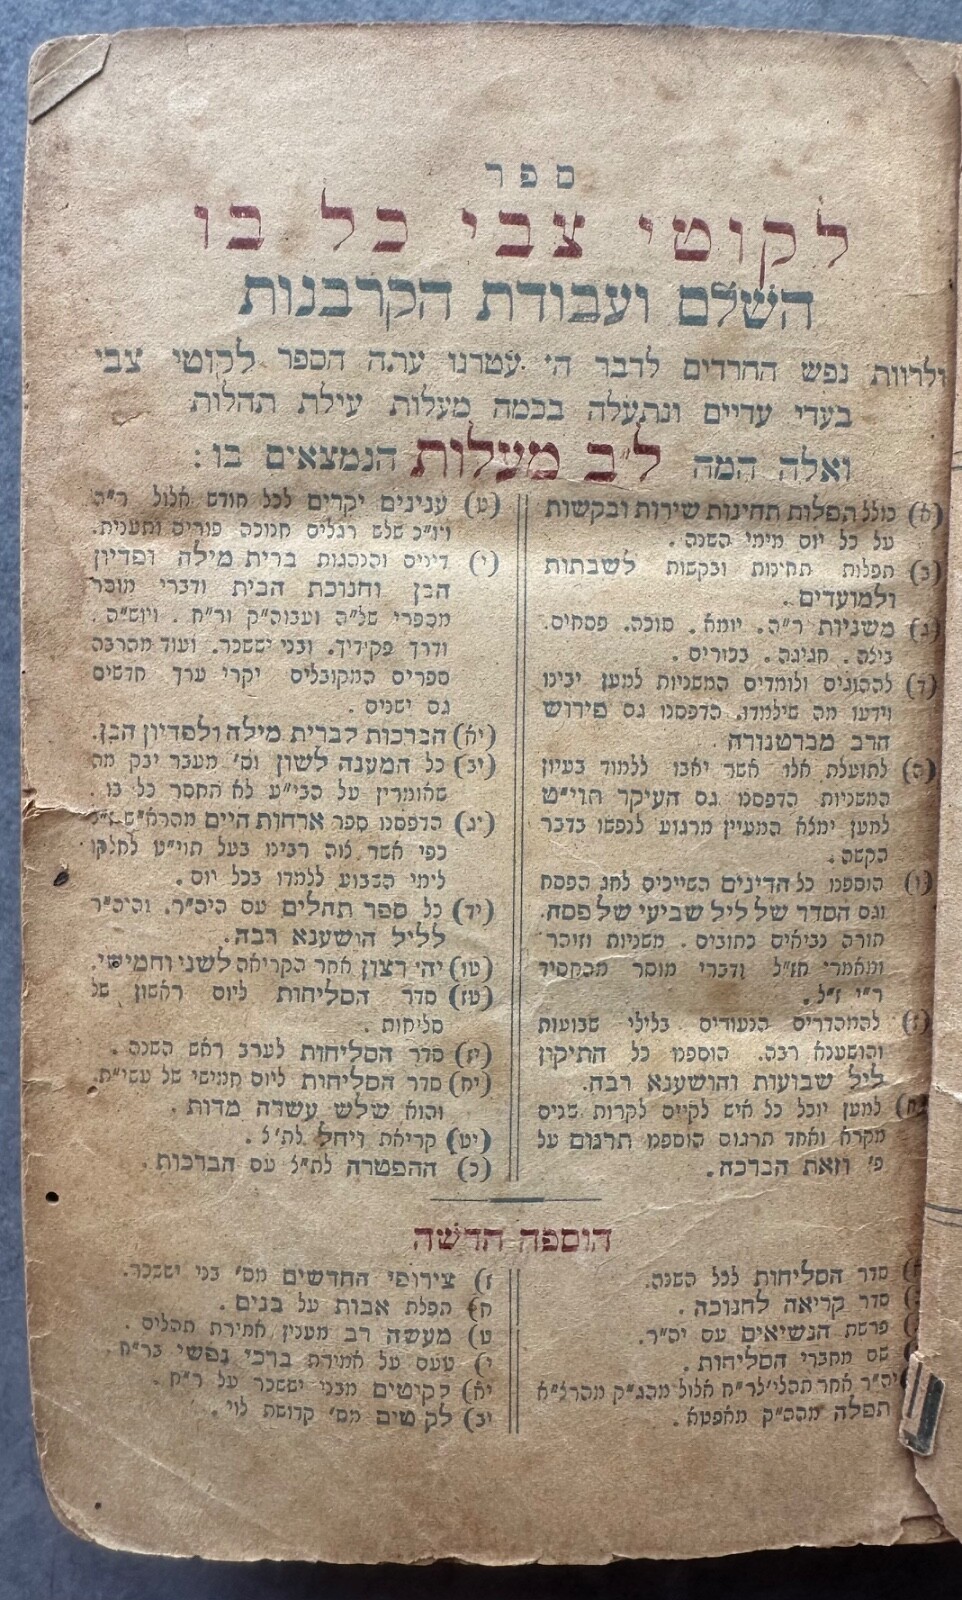 ספר
לקוטי צבי כל בו
השלם ועבודת הקרבנות
ולרוות נפש החרדים לדבר ה' עטרנו עתה הספר לקוטי צבי
בעדי עדיים ונתעלה בכמה מעלות עילת תהלות
ואלה המה ל"ב מעלות הנמצאים בו:
(א) כולל תפלות תחינות שירות ובקשות
על כל יום מימי השנה.
(ב) תפלות תחינות ובקשות לשבתות
ולמועדים.
(ג) משניות ר"ה. יומא. סוכה. פסחים.
ביצה. חגיגה. בכורים.
(ד) להחוגים ולומדים המשניות למען יבינו
וידעו מה שילמדו. הדפסנו גם פירוש
הרב מברטנורה
(ה) לתועלת אלו אשר יאבו ללמוד בעיון
המשניות הדפסנו גם העיקר תוי"ט
למען ימלא המעיין מרגוע לנפשו בדבר
הקשה.
(ו) הוספנו כל הדינים השייכים לחג הפסח
וגם הסדר של ליל שביעי של פסח.
תורה נביאים כתובים. משניות וזוהר
ומאמרי חז"ל ודברי מוסר מהחסיד
ר"י ז"ל.
(ז) להמהדרים הנעורים בלילי שבועות
והושענא רבה. הוספנו כל התיקון
ליל שבועות והושענא רבה.
(ח) למען יוכל כל איש לקיים לקרות שנים
מקרא ואחד תרגום הוספנו תרגום על
פ' וזאת הברכה.
(ט) ענינים יקרים לכל חודש אלול ר"ה
ויו"כ שלש רגלים חנוכה פורים ותענית.
(י) דינים והנהגות ברית מילה ופדיון
הבן וחנוכת הבית ודברי מוסר
מספרי של"ה ועבוה"ק ור"ח. ויוש"ה.
ודרך פקידיך. ובני יששכר. ועוד מהרבה
ספרים המקובלים יקרי ערך חדשים
גם ישנים.
(יא) הברכות לברית מילה ולפדיון הבן.
(יב) כל המענה לשון וס' מעבר יבק מה
שאומרין על הבי"ע לא תחסר כל בו.
(יג) הדפסנו ספר ארחות חיים מהרא"ש ז"ל
כפי אשר צוה רבינו בעל תוי"ט לחלקו
לימי השבוע ללמדו בכל יום.
(יד) כל ספר תהלים עם היה"ר. והיה"ר
לליל הושענא רבה.
(טו) יהי רצון אחר הקריאה לשני וחמישי.
(טז) סדר הסליחות ליום ראשון של
סליחות.
(יז) סדר הסליחות לערב ראש השנה.
(יח) סדר הסליחות ליום חמישי של עשי"ת.
והוא שלש עשרה מדות.
(יט) קריאת ויחל לת"ל.
(כ) ההפטרה לת"ל עם הברכות.
הוספה חדשה
סדר הסליחות לכל השנה.
סדר קריאה לחנוכה.
פרשת הנשיאים עם יה"ר.
שם מחברי הסליחות.
יה"ר אחר תהלי' לר"ח אלול מהג"ק מהרל"א
תפלה מהה"ק מאפטא.
ז) צירופי החדשים מס' בני יששכר.
ח) תפלת אבות על בנים.
ט) מעשה רב מענין אמירת תהלים.
י) טעם על אמירת ברכי נפשי בר"ח.
יא) לקיטים מבני יששכר על ר"ח.
יב) לקטים מס' קדושת לוי.